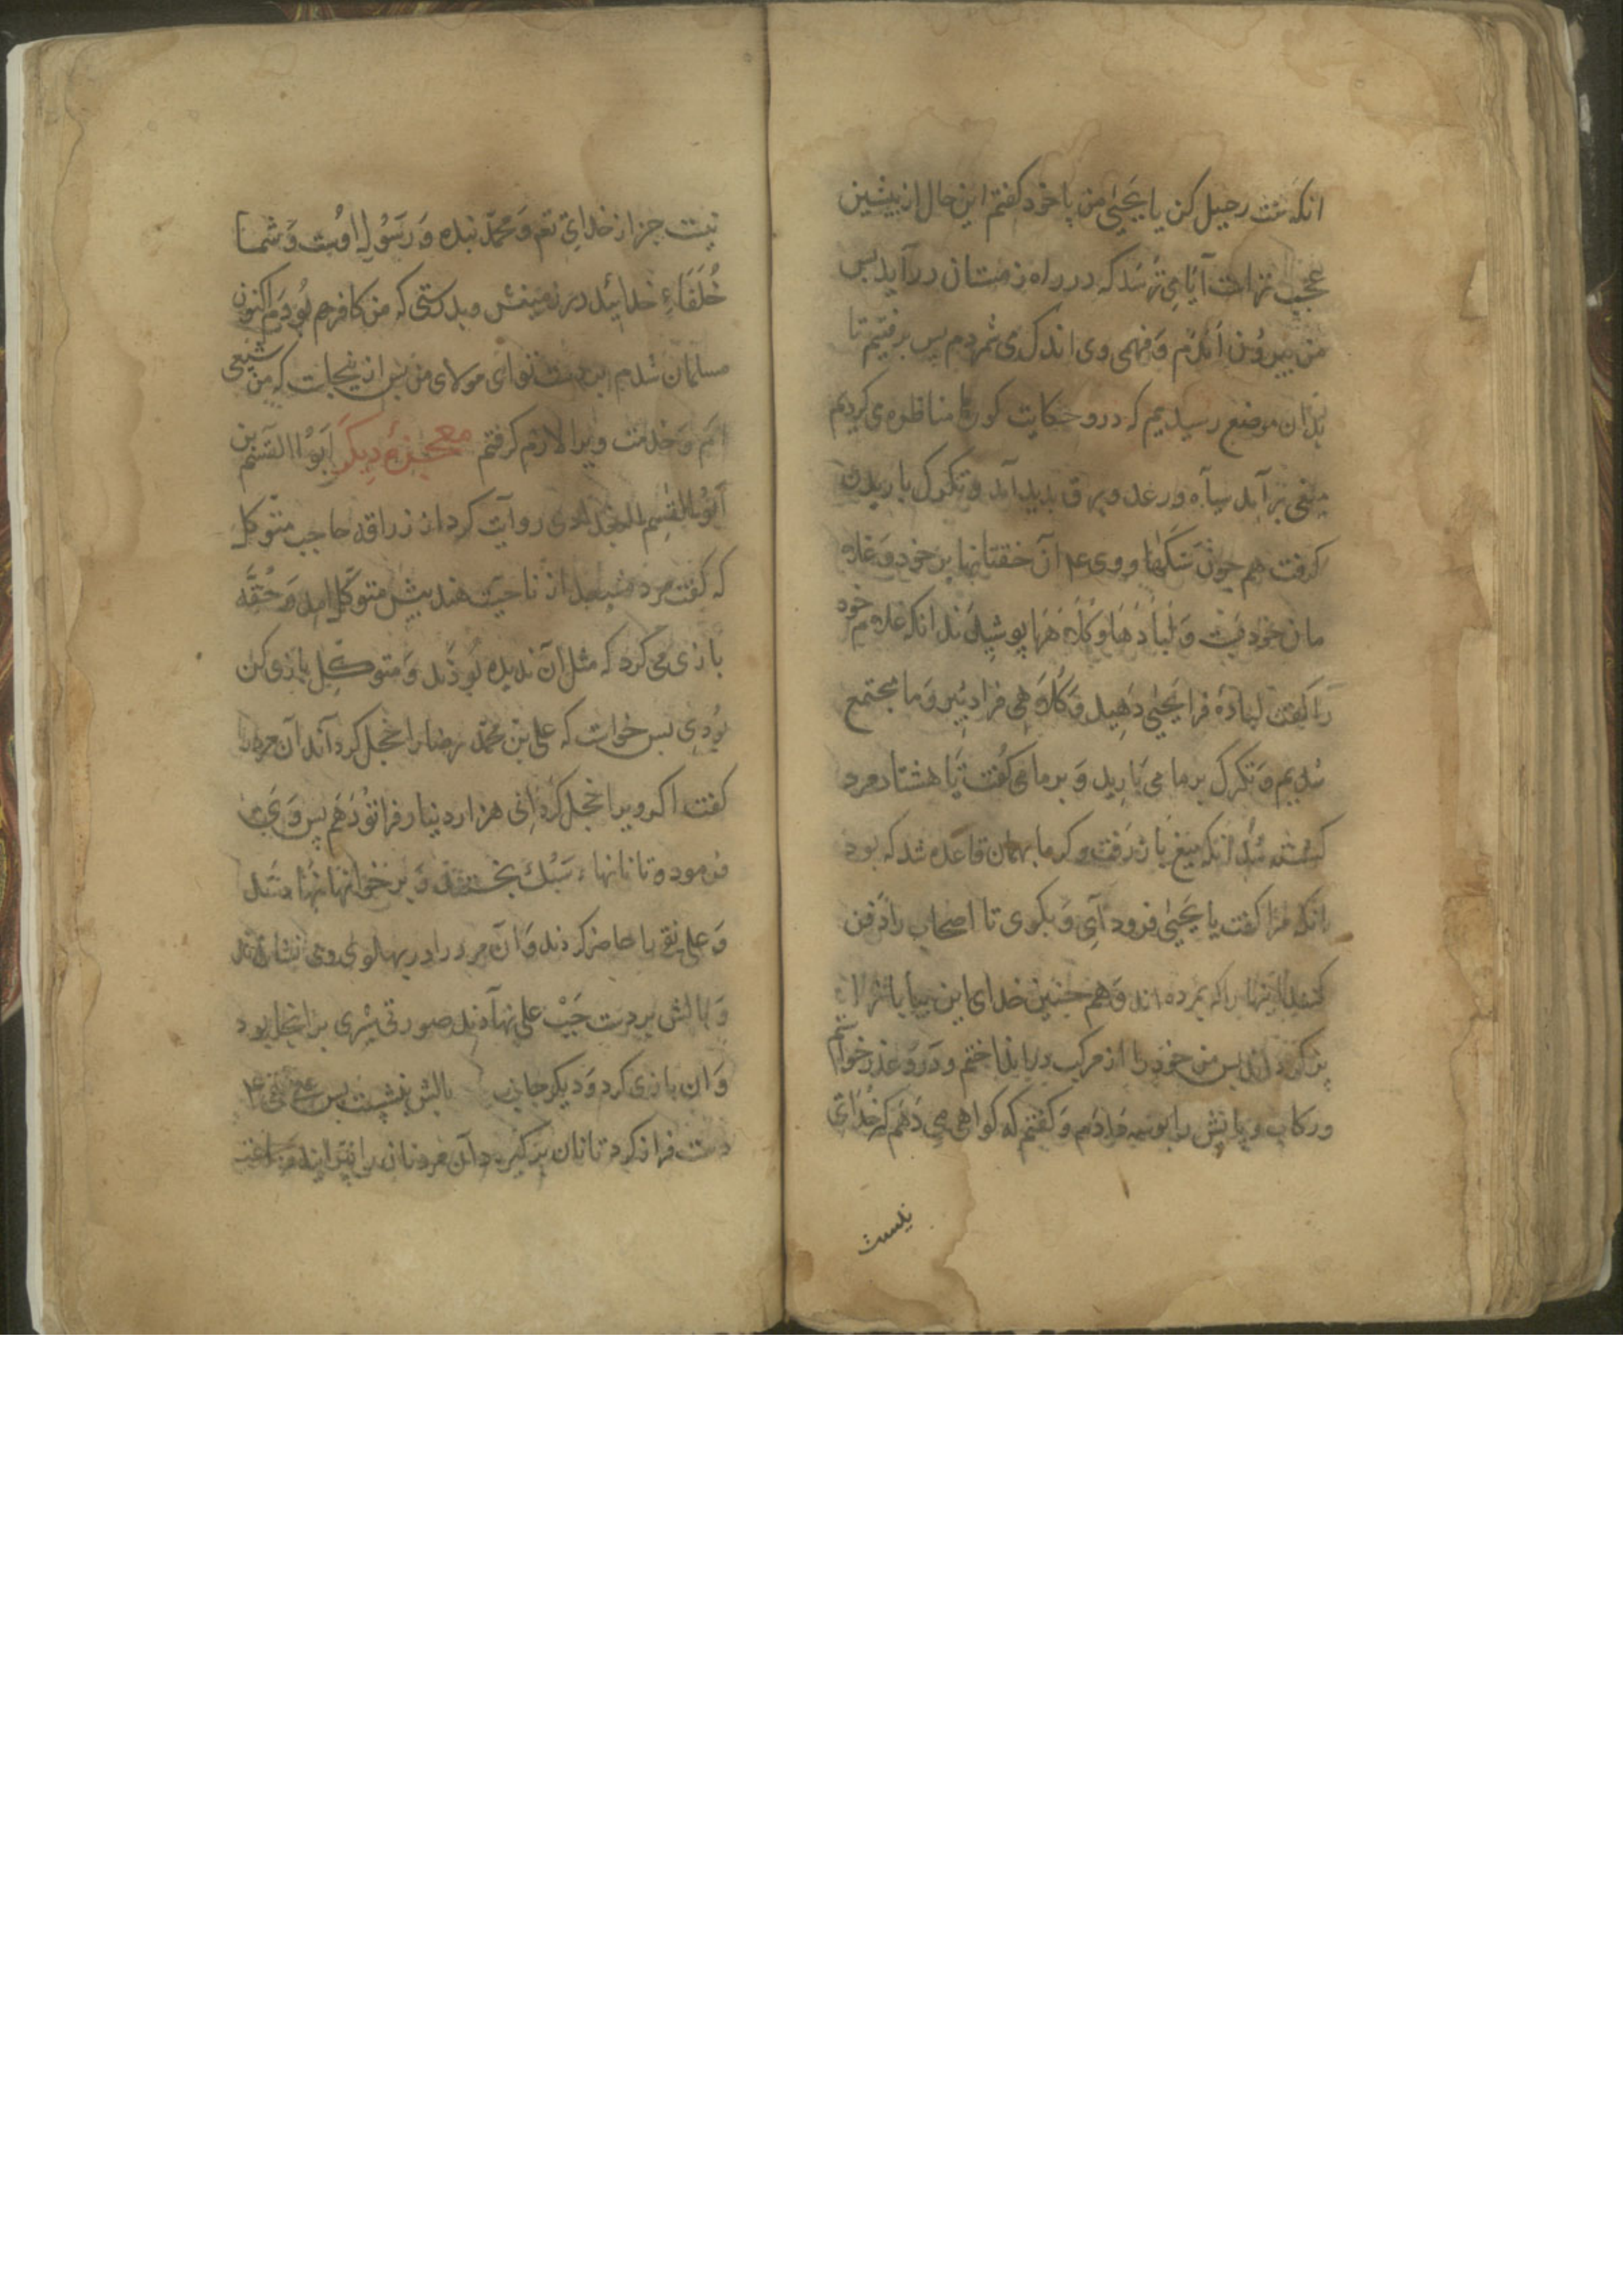 انکه گفت رحیل کن یا یحیی من با خود کفتم این حال از پیشین
عجب تراست آیا می ترسد که در راه زمستان درآید پس
من بیرون آمدم و فهمی وی اندک می شمردم پس برفتیم تا
بدان موضع رسیدیم که درو حکایت کورها مناظره می کردیم
میغی برآمد سیاه و رعد و برق بدید آمد و تکرک باریدن
کرفت هم چون سنکها و وی ع آن خفتانها بر خود و غلا
مان خود و لبادها و کلاه ها پوشیدند انکه غلام خود
را کفت لباده فرا یحیی دهید و کلاهی فرا دبیر و ما مجتمع
شدیم و تکرک بر ما می بارید و بر ما می کفت تا هشتاد مرد
کشته شد انکه میغ باز رفت و کرما بهمان قاعده شد که بود
انکه مرا کفت یا یحیی فرود آی و بکوی تا اصحاب را دفن
کنند اینها را که بمرده اند و هم جنین خدای این بیابانرا
پر کرداند پس من خود را از مرکب در انداختم و درو عذر خواستم
و رکاب و پایش را بوسه می دادم و کفتم که کواهی می دهم که خدای
نیست
نیست جز از خدای تع و محمد بنده و رسول اوست و شما
خلفاء خدائید در زمینش و بدرستی که من کافر بودم اکنون
مسلمان شدم بر دست تو ای مولای من پس از ینجاست که من شیعی
ام و خدمت ویرا لازم کرفتم معجزه دیکر ابو القسم بن
ابو القسم البغدادی روایت کرد از زراقه حاجب متوکل
که کفت مرد مشعبد از ناحیت هند پیش متوکل امد و حقه
بازی می کرد که مثل آن ندیده بودند و متوکل بازی کن
بودی پس خواست که علی بن محمد رضا را خجل کرداند آن مرد را
کفت اکر ویرا خجل کردانی هزار دینار فرا تو دهم پس وی
فرموده تا نانهاء سبک بختند و بر خوانها نهادند
و علی نقی را حاضر کردند و آن مرد را در پهلوی وی نشاندند
و بالش بر دست جب علی نهادند صورتی شری بر انجا بود
و ان بازی کرد و دیکر جانب بالش نشست پس علی نقی ع
دست فراز کرد تا نان برکیرد آن مرد نان را بپرانید